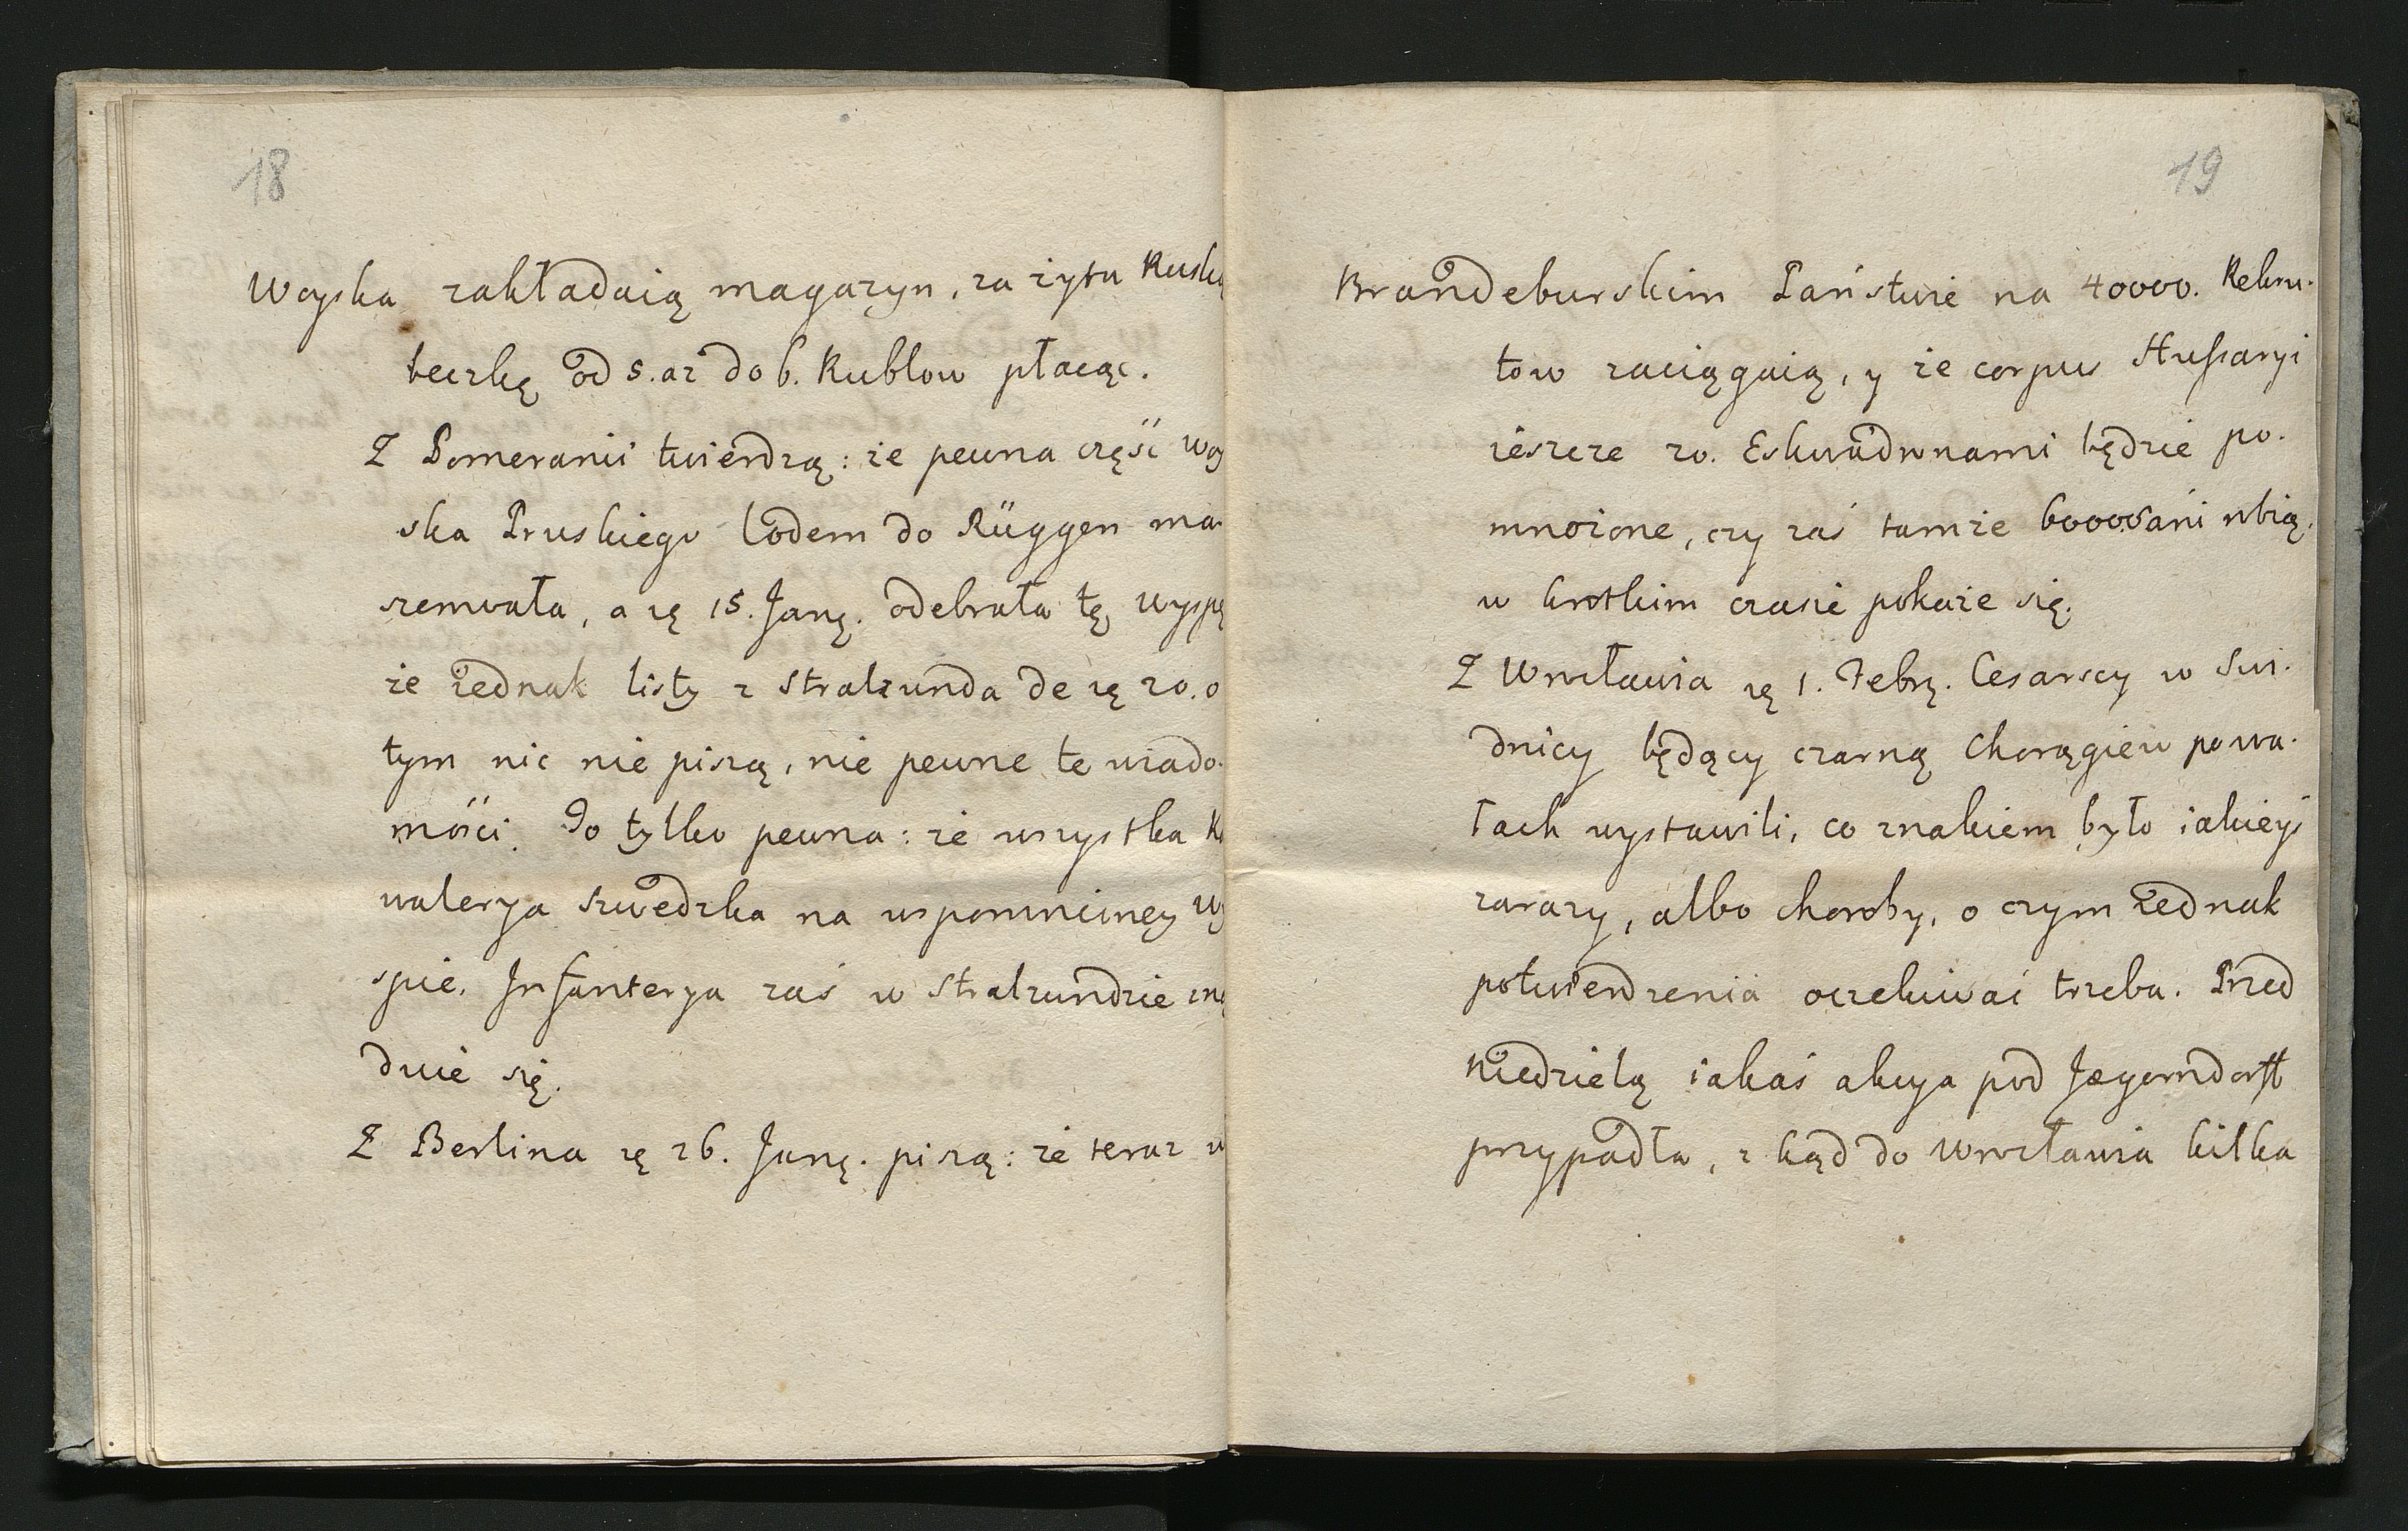 18
Woyska zakładaią magazyn, za żyta Ruską
beczkę od 5. aż do 6. Rublow płacąc.
Z Pomeranii twierdzą: że pewna część Woy
ska Pruskiego lodem do Rüggen ma-
szerowała, a rę 15. Janȩ. odebrała tę wyspę
że iednak listy z Stralzunda de rę 20. o
tym nic nie piszą, nie pewne te wiado-
mości. To tylko pewna: że wszystka Ka
walerya Szwedzka na wspomnioney Wy
spie. Infanterya zaś w Stralzundzie zna
duie się.
Z Berlina rę 26. Janȩ. piszą: że teraz w
19
Brandeburskim Państwie na 40000. Rekru-
tow zaciągaią, y że corpus Hussaryi
ieszcze 20. Eskwadronami będzie po-
mnożone, czy zaś tamże robią,
w krotkim czasie pokaże się.
Z Wrocławia rę 1. Febrȩ. Cesarscy w Swi-
dnicy będący czarną Chorągiew po wa-
łach wystawili, co znakiem było iakieyś
zarazy, albo choroby, o czym iednak
potwierdzenia oczekiwać trzeba. Przed
Niedzielą iakaś akcya pod Jægerndorff
przypadła, z kąd do Wrocławia kilka